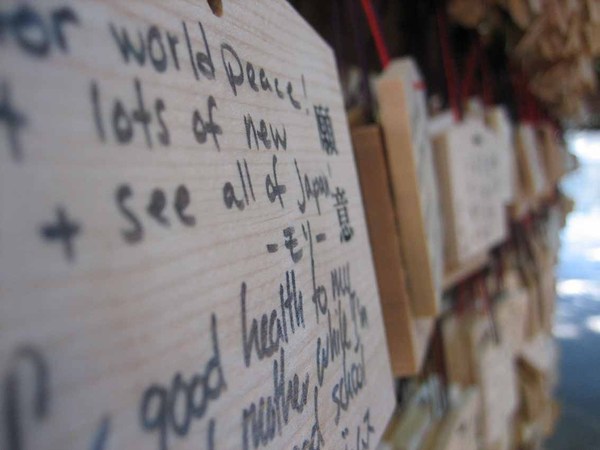 for world peace!
+ lots of new
+ see all of Japan!
-モリ-
願
意
good health to my
mother while I'm
school